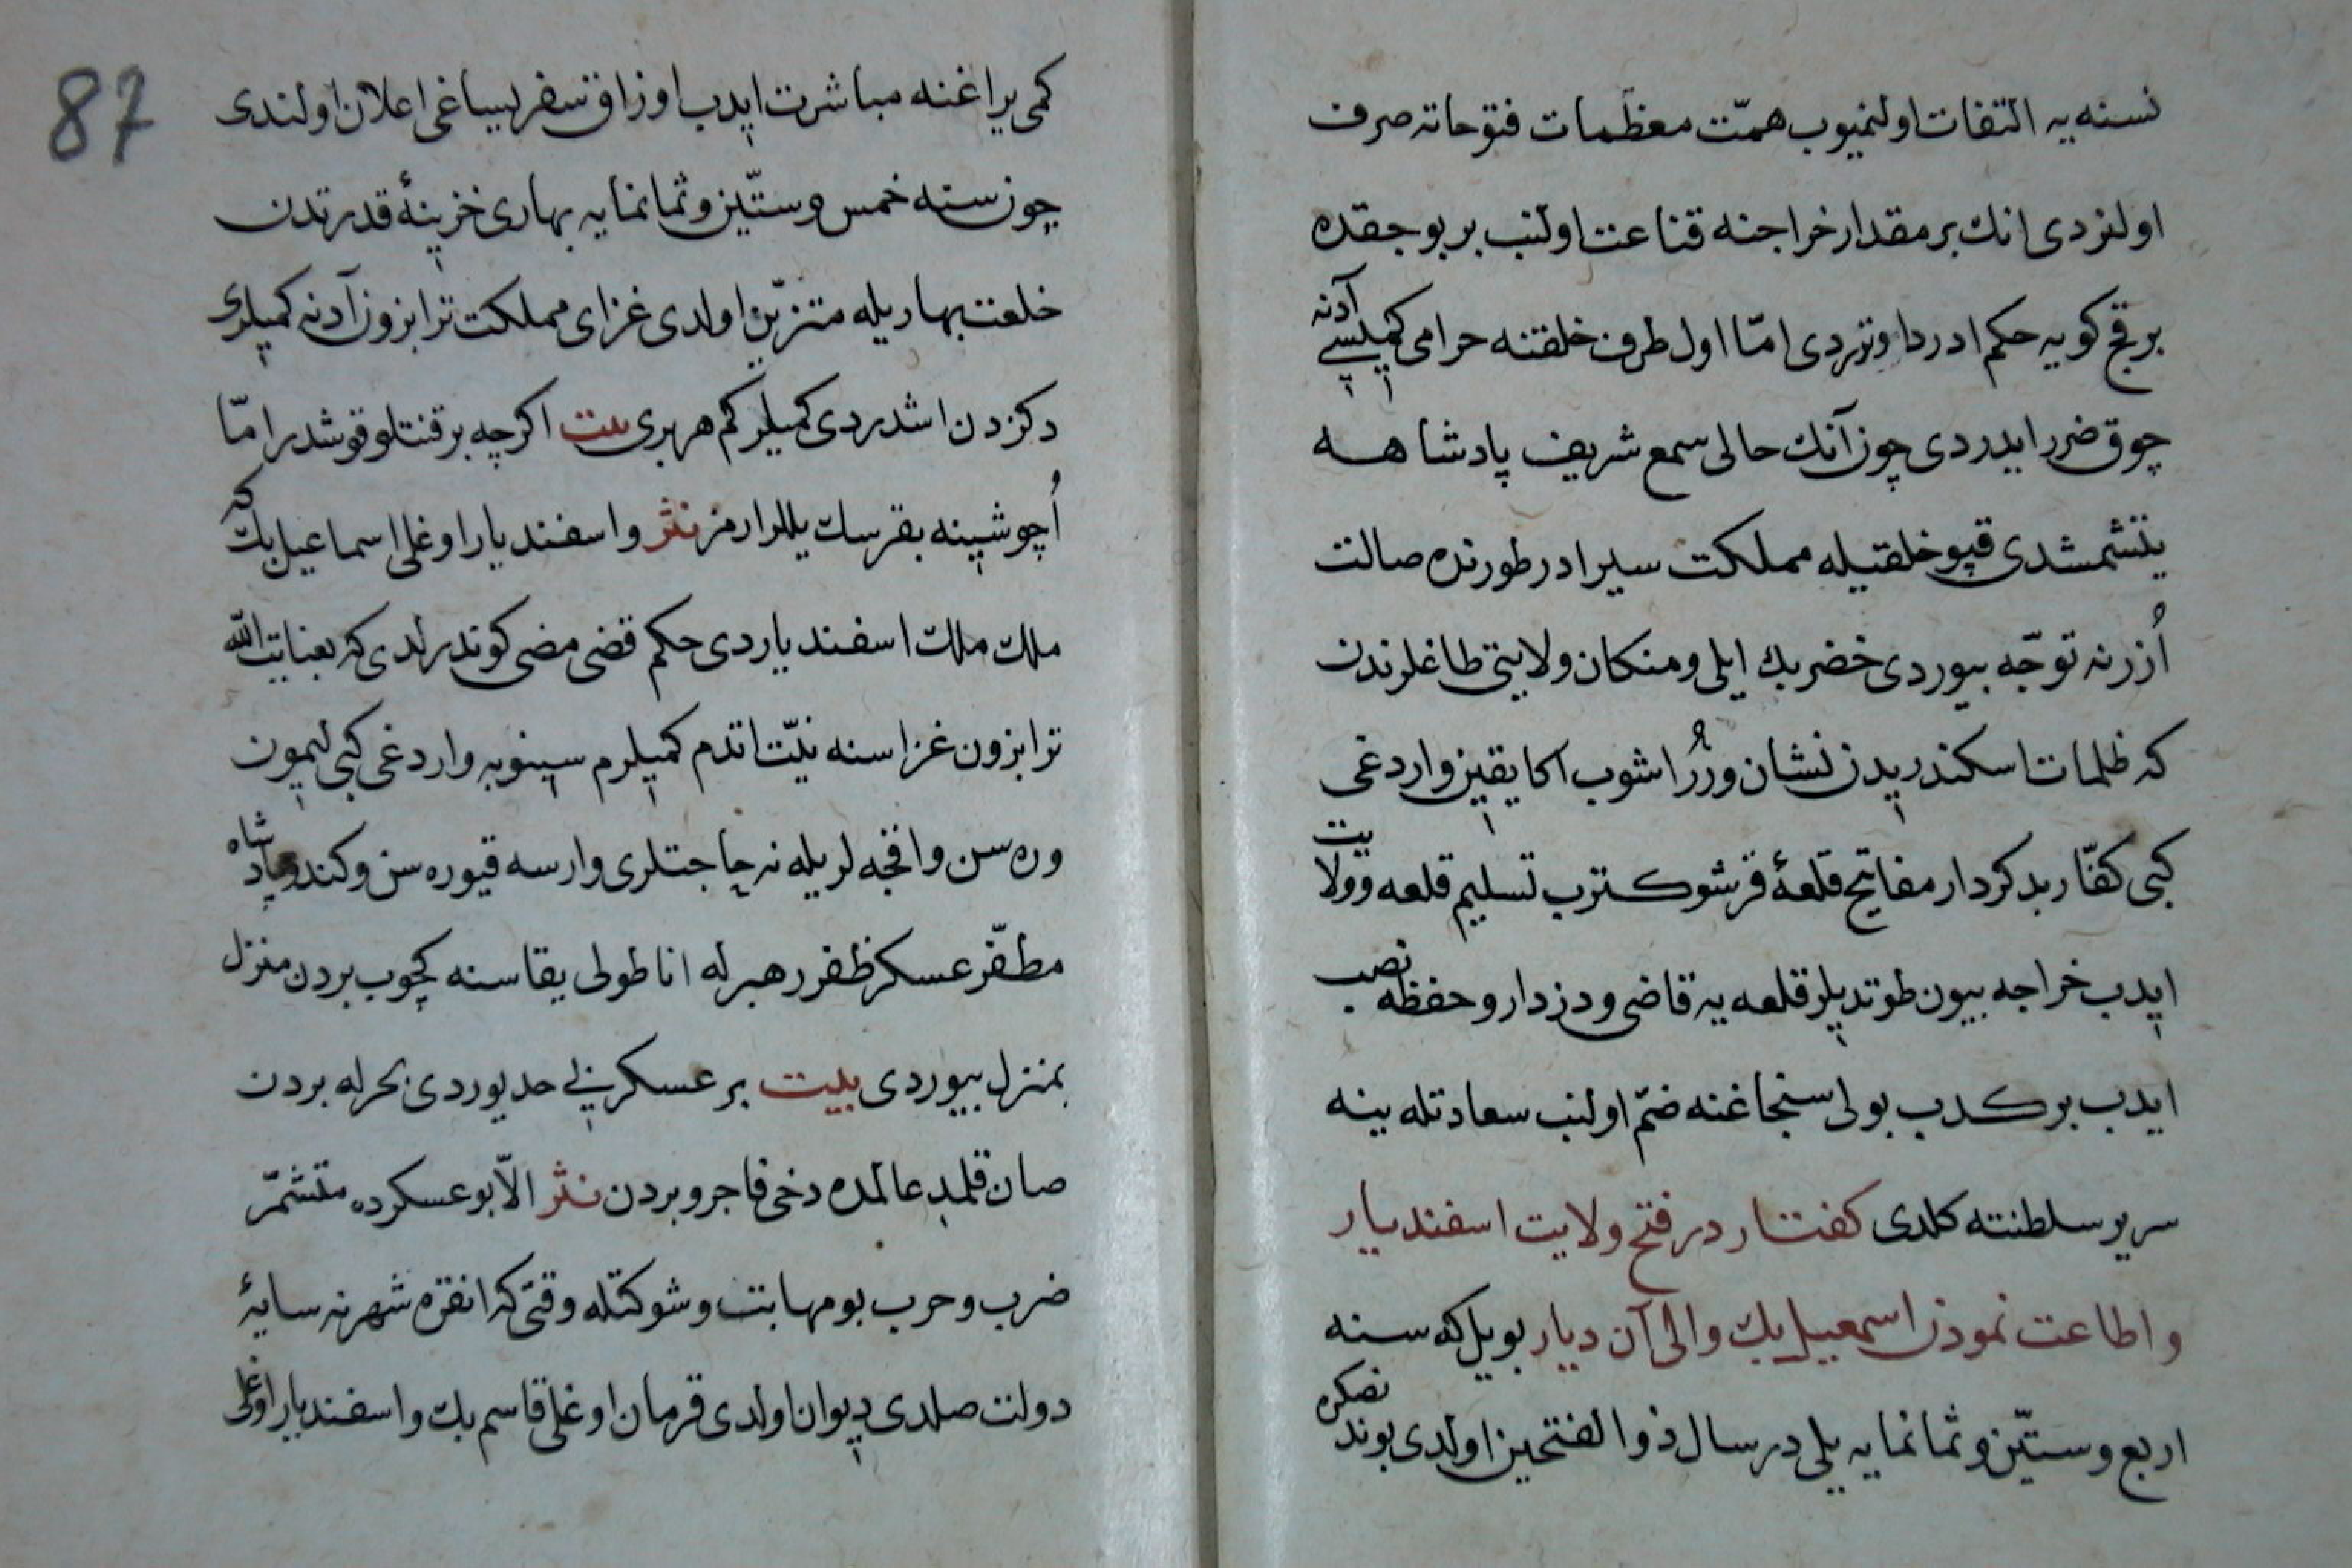 نسنه‌یه التفات اولنمیوب همّت معظّمات فتوحاته صرف
اولنردی انك بر مقدار خراجنه قناعت اولنب بر بوجقده
بر قچ کویه حکم ادردا وتردی امّا اول طرف خلقنه حرامی کمیلسی آدنه
چوق ضرر ایدردی چون آنك حالی سمع شریف پادشاهه
یتشمشدی قپو خلقیله مملکت سیرادر طورنده صالت
اُزرنه توجّه بیوردی خضر بك ایلی ومنکان ولایتی طاغلرندن
که ظلمات اسکندریدن نشان ورُر اشوب اکا یقین واردغی
کبی کفّار بدکردار مفاتیح قلعۀ قرشو کترب تسلیم قلعه وولایت
ایدب خراجه بیون طوتدیلر قلعه‌یه قاضی ودزدار وحفظه نصب
ایدب برکدب بولی سنجاغنه ضمّ اولنب سعادتله ینه
سریر سلطنته کلدی کفتار در فتح ولایت اسفندیار
واطاعت نمودن اسمعیل بك والی آن دیار بو ییل که سنه
اربع وستّین وثمانمایه ییلی در سال ذوالفتحین اولدی بوندنصکره
87
کمی یراغنه مباشرت ایدب اوزاق سفر یساغی اعلان اولندی
چون سنه خمس وستّین وثمانمایه بهاری خزینۀ قدرتدن
خلعت بهاریله متزیّن اولدی غزای مملکت ترابزون آدنه کمیلری
دکزدن اشدردی کمیلر کم هر بری بیت اکرچه بر قنتلو قوشدر امّا
اُچوشینه بقرسك یللر ارمز نثر واسفندیار اوغلی اسماعیل بك که
ملك ملك اسفندیاردی حکم قضی مضی کوندرلدی که بعنایت الله
ترابزون غزاسنه نیّت اتدم کمیلرم سینوبه واردغی کبی لیمون
ورەسن واقچه لریله نه حاجتلری وارسه قیوره سن وکندو پادشاه
مظفّر عسکر ظفر رهبرله اناطولی یقاسنه کچوب بردن منزل
بمنزل بیوردی بیت بر عسکر بی حد یوردی بحرله بردن
صان قلمدی عالمده دخی فاجر وبردن نثر الاّ بو عسکرده متشمّر
ضرب وحرب بو مهابت وشوکتله وقتی که انقره شهرنه سایۀ
دولت صلدی دیوان اولدی قرمان اوغلی قاسم بك واسفندیار اوغلی